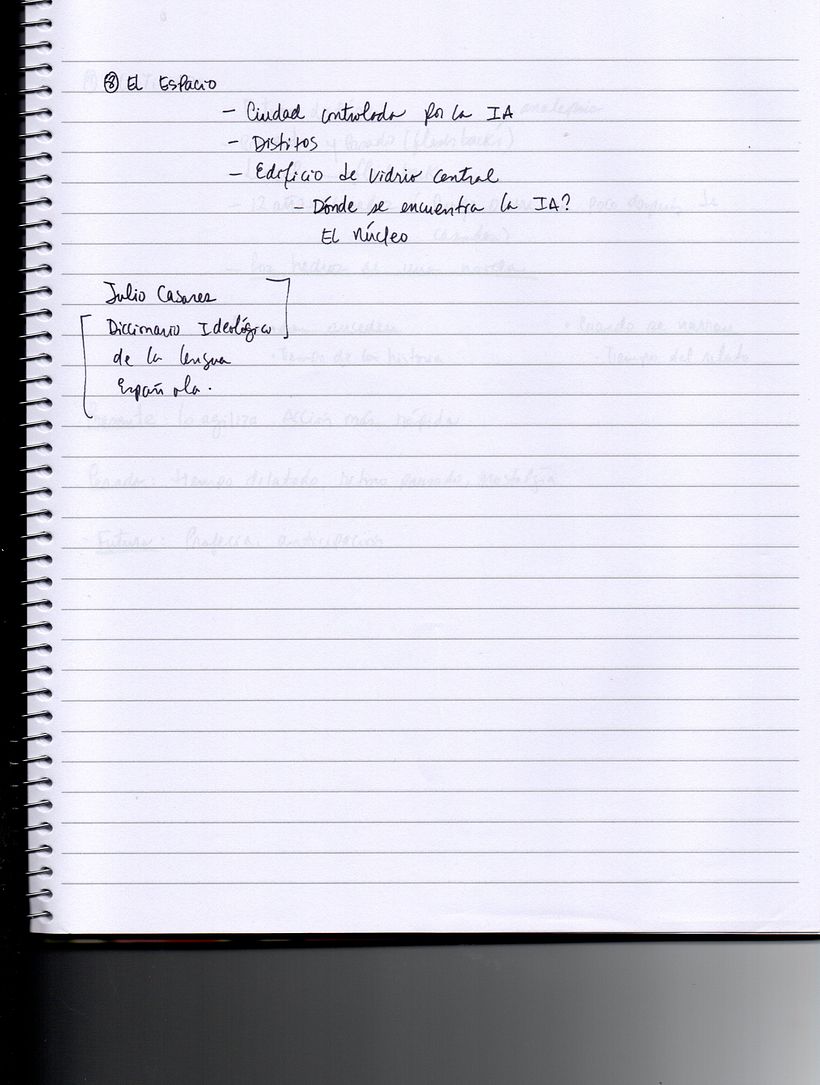 ⑧ El Espacio
- Ciudad controlada por la IA
- Distitos
- Edificio de vidrio central
- Dónde se encuentra la IA?
El Núcleo
Julio Casares
Diccionario Ideológico
de la lengua
Española.